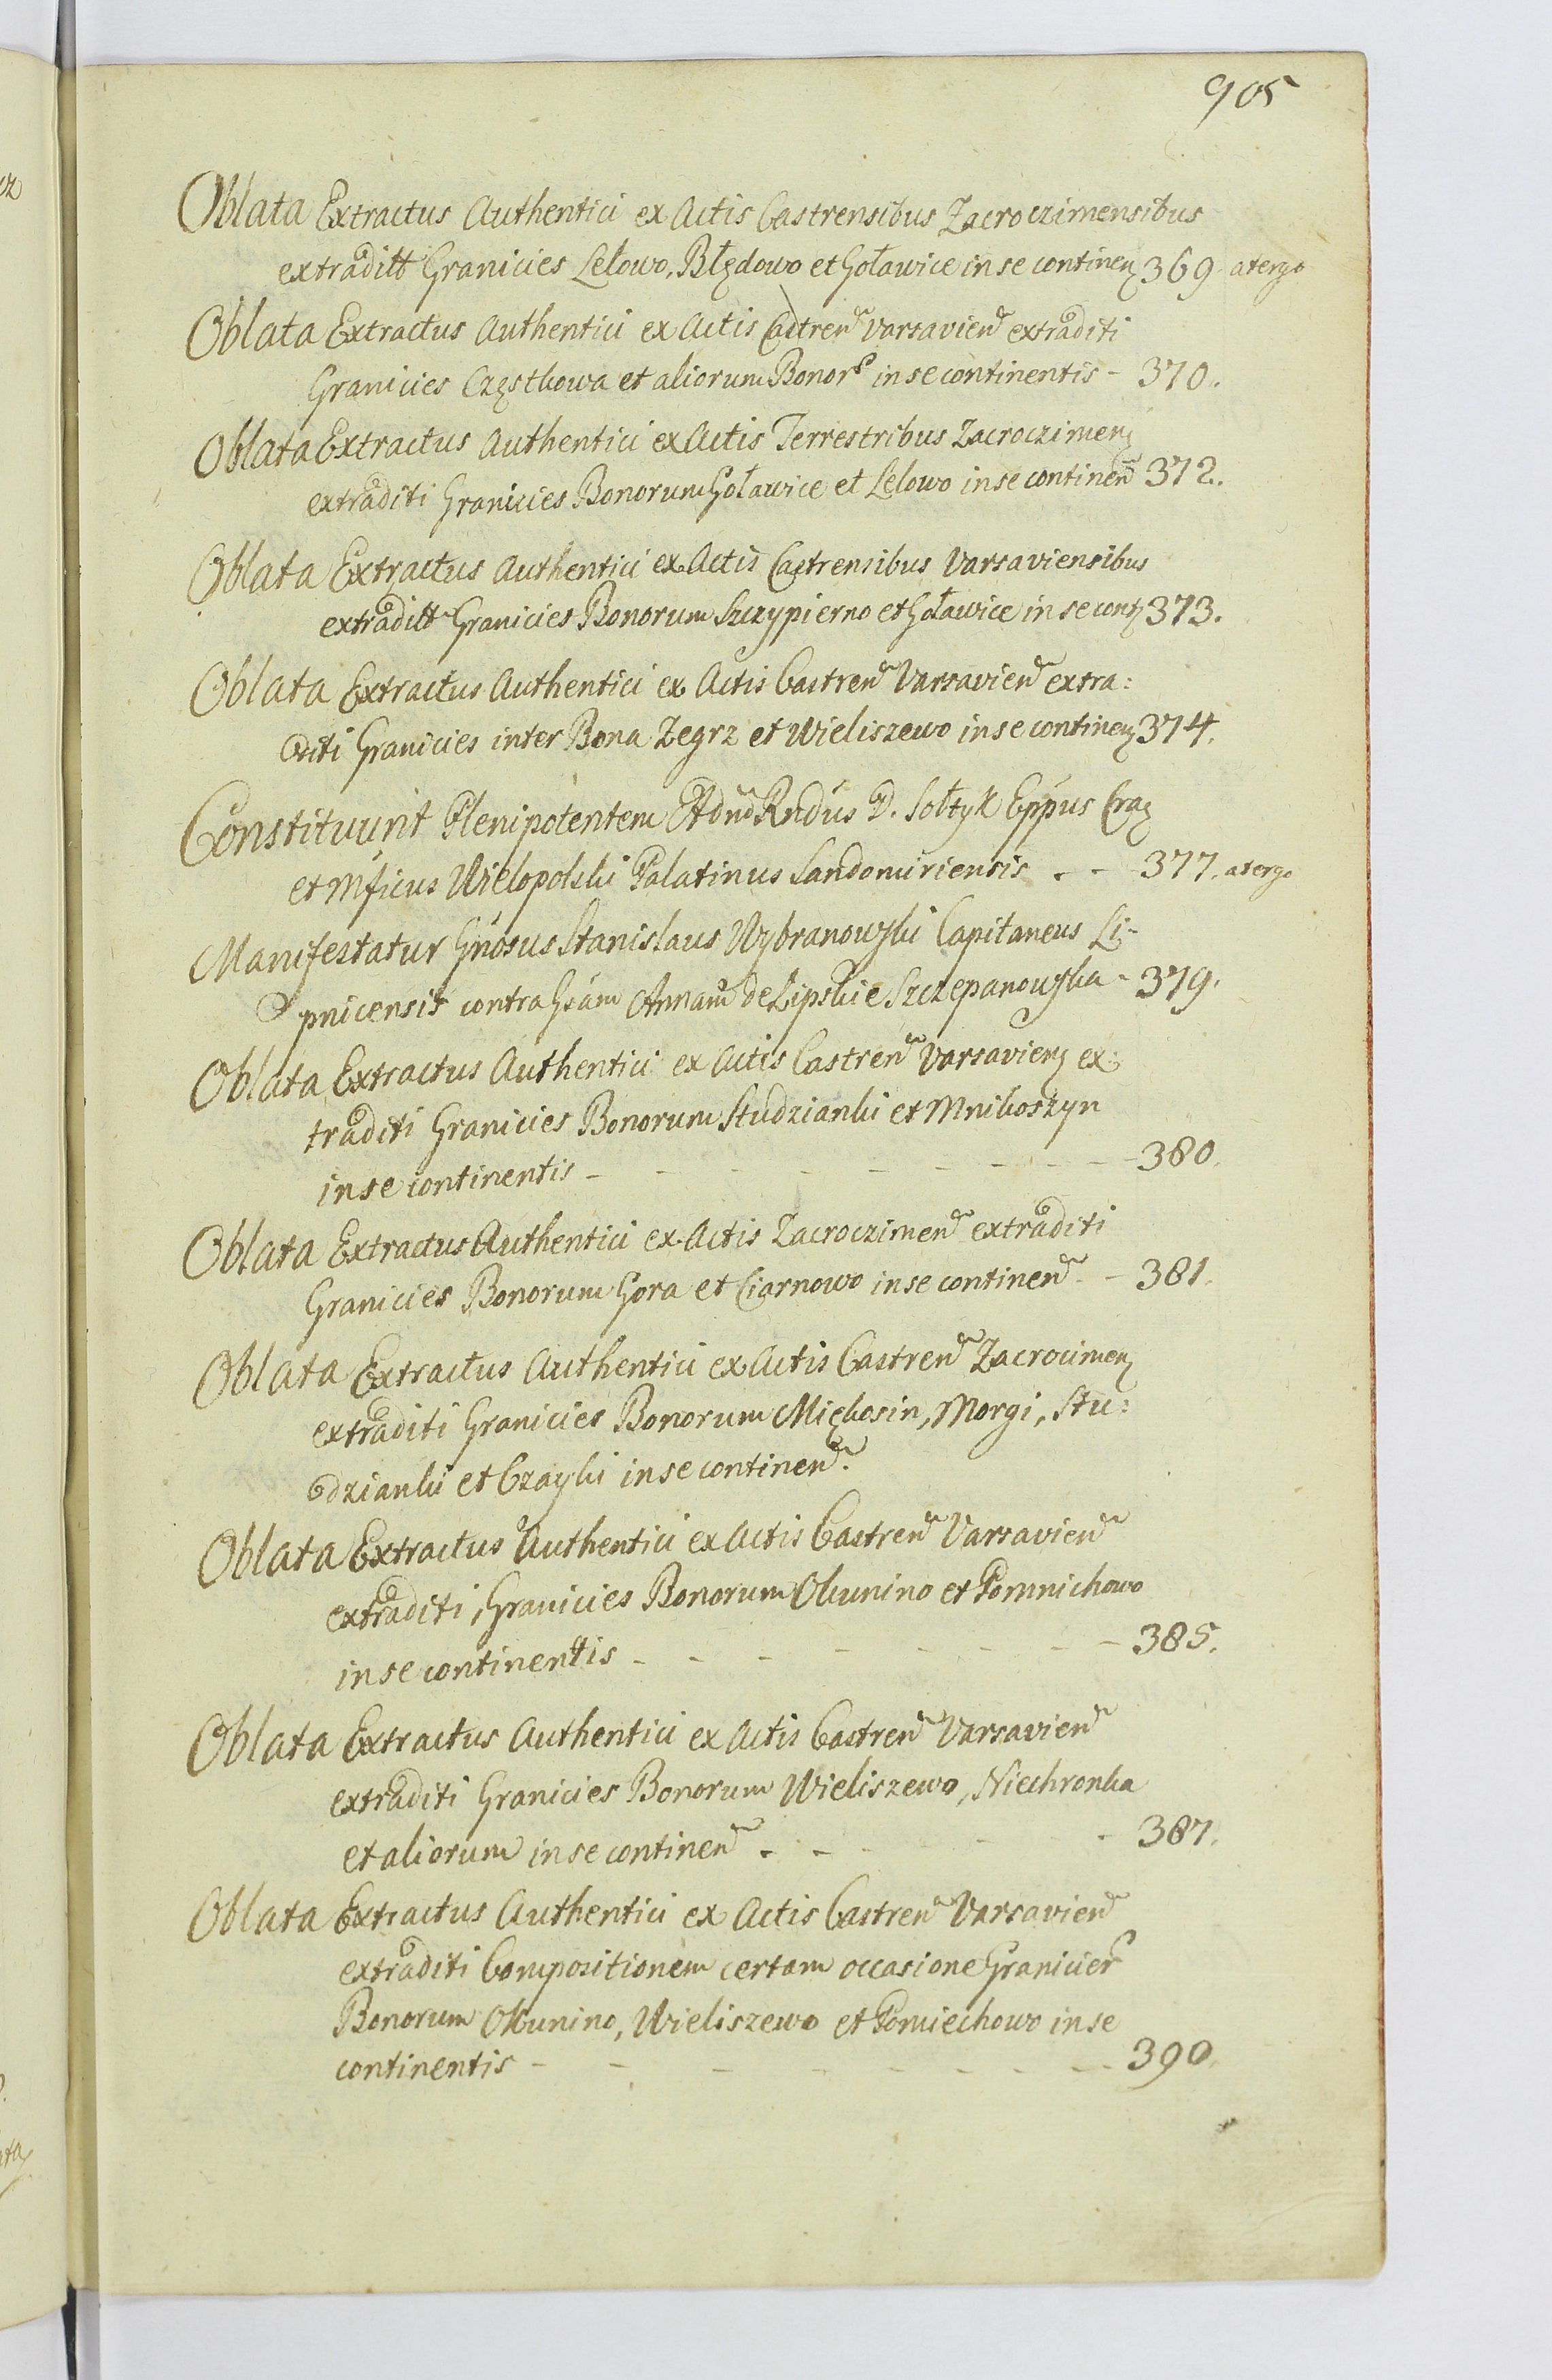 905
Oblata Extractus Authentici ex Actis Castrensibus Zacroczimensibus
extraditt Granicies Lelowo, Błędowo et Goławice in se continen 369 a tergo
Oblata Extractus Authentici ex Actis Castren Varsavien extraditi
Granicies Częstkowa et aliorum Bonor in se continentis - 370.
Oblata Extractus Authentici ex Actis Terrestribus Zacroczimen
extraditi Granicies Bonorum Goławice et Lelowo in se continen 372.
Oblata Extractus Authentici ex Actis Castrensibus Varsaviensibus
extraditt Granicies Bonorum Szczypierno et Goławice in se cont 373.
Oblata Extractus Authentici ex Actis Castren Varsavien extra:
diti Granicies inter Bona Zegrz et Wieliszewo in se continen 374.
Constituunt Plenipotentem Rndus D. Sołtyk Eppus Crac
et Mficus Wielopolski Palatinus Sandomiriensis . - - 377. a tergo
Manifestatur Gnosus Stanislaus Wybranowski Capitaneus Li-
pnicensis contra Gsam Annam de Lipskie Szczepanowska - 379.
Oblata Extractus Authentici ex Actis Castren Varsavien ex:
traditi Granicies Bonorum Studzianki et Mnikoszyn
in se continentis - - - - - - - - 380.
Oblata Extractus Authentici ex Actis Zacroczimen extraditi
Granicies Bonorum Gora et Czarnowo in se continen - 381.
Oblata Extractus Authentici ex Actis Castren Zacrocimen
extraditi Granicies Bonorum Miękosin, Morgi, Stu:
dzianki et Czayki in se continen.
Oblata Extractus Authentici ex Actis Castren Varsavien
extraditi, Granicies Bonorum Okunino et Pomnichowo
in se continentis - - - - - - - 385.
Oblata Extractus Authentici ex Actis Castren Varsavien
extraditi Granicies Bonorum Wieliszewo, Niechronka
et aliorum in se continen . - - - - 387.
Oblata Extractus Authentici ex Actis Castren Varsavien
extraditi Compositionem certam occasione Granicier
Bonorum Okunino, Wieliszewo et Pomiechowo in se
continentis - - - - - - - - 390.